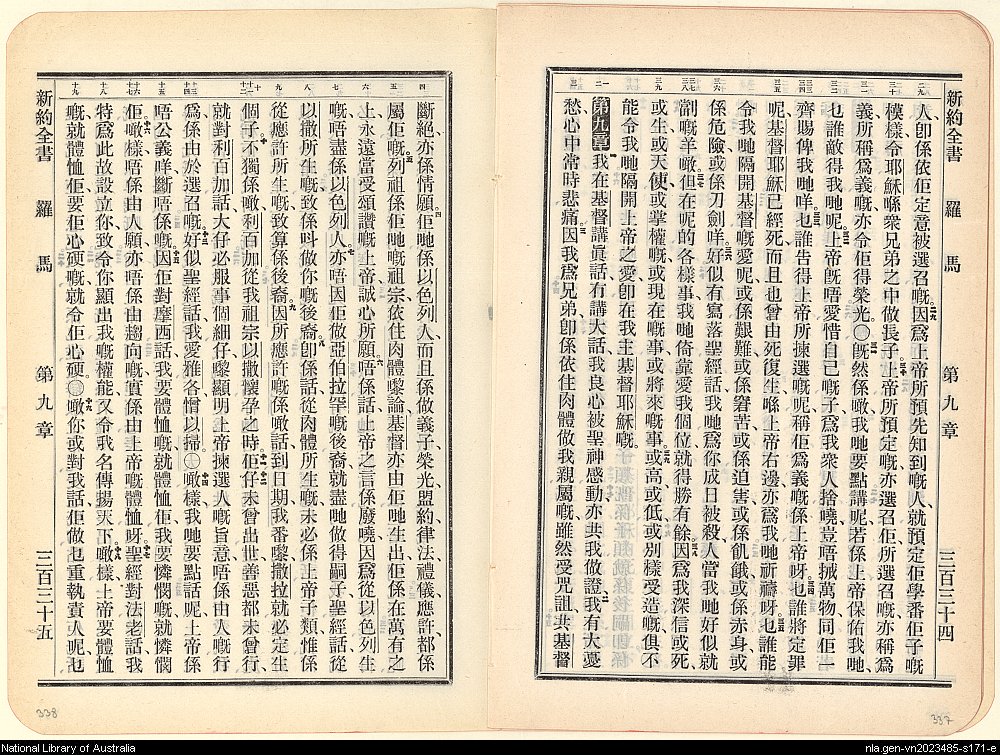 新約全書 羅馬 第九章 三百三十四
人、卽係依佢定意被選召嘅、因爲上帝所預先知到嘅人、就預定佢學番佢子嘅
模樣、令耶穌喺衆兄弟之中做長子、上帝所預定嘅、亦選召佢、所選召嘅、亦稱爲
義、所稱爲義嘅、亦令佢得榮光〇旣然係噉、我哋要點講呢、若係上帝保佑我哋、
乜誰敵得我哋呢、上帝旣唔愛惜自己嘅子、爲我衆人捨嘵、豈唔揻萬物同佢一
齊賜俾我哋咩、乜誰告得上帝所揀選嘅呢、稱佢爲義嘅係上帝呀、乜誰將定罪
呢、基督耶穌已經死、而且也曾由死復生、喺上帝右邊、亦爲我哋祈禱呀、乜誰能
令我哋隔開基督嘅愛呢、或係艱難、或係窘苦、或係迫害、或係飢餓、或係赤身、或
係危險、或係刀劍咩、好似有寫落聖經話、我哋爲你成日被殺、人當我哋好似就
劏嘅羊噉、但在呢的各樣事、我哋倚靠愛我個位、就得勝有餘、因爲我深信或死、
或生、或天使、或掌權嘅、或現在嘅事、或將來嘅事、或高、或低、或別樣受造嘅、俱不
能令我哋隔開上帝之愛、卽在我主基督耶穌嘅、
第九章 我在基督講眞話、冇講大話、我良心被聖神感動、亦共我做證、我有大憂
愁、心中當時悲痛、因我爲兄弟、卽係依住肉體做我親屬嘅、雖然受咒詛、共基督
斷絕、亦係情願、佢哋係以色列人、而且係做義子、榮光、盟約、律法、禮儀、應許、都係
屬佢嘅、列祖係佢哋嘅祖宗、依住肉體嚟論、基督亦由佢哋生出、佢係在萬有之
上、永遠當受頌讚嘅上帝、誠心所願、唔係話上帝之言係廢嘵、因爲從以色列生
嘅、唔盡係以色列人、亦唔因佢做亞伯拉罕嘅後裔、就盡哋做得嗣子、聖經話、從
以撒所生嘅、致係呌做你嘅後裔、卽係話從肉體所生嘅、未必係上帝子類、惟係
從應許所生嘅、致算係後裔、因所應許嘅係噉話、到日期我番嚟、撒拉就必定生
個子、不獨係噉、利百加從我祖宗以撒懷孕之時、佢仔未曾出世、善惡都未曾行、
就對利百加話、大仔必服事個細仔、嚟顯明上帝揀選人嘅旨意、唔係由人嘅行
爲、係由於選召嘅、好似聖經話、我愛雅各、憎以掃〇噉樣我哋要點話呢、上帝係
唔公義咩、斷唔係嘅、因佢對摩西話、我要體恤嘅就體恤佢、我要憐憫嘅就憐憫
佢、噉樣唔係由人願、亦唔係由趨向嘅、實係由上帝嘅體恤呀、聖經對法老話、我
特爲此故設立你、致令你顯出我嘅權能、又令我名傳揚天下、噉樣上帝要體恤
嘅、就體恤佢、要佢心硬嘅、就令佢心硬〇噉你或對我話、佢做乜重執責人呢、乜
新約全書 羅馬 第九章 三百三十五
338
337
National Library of Australia
nla.gen-vn2023485-s171-e